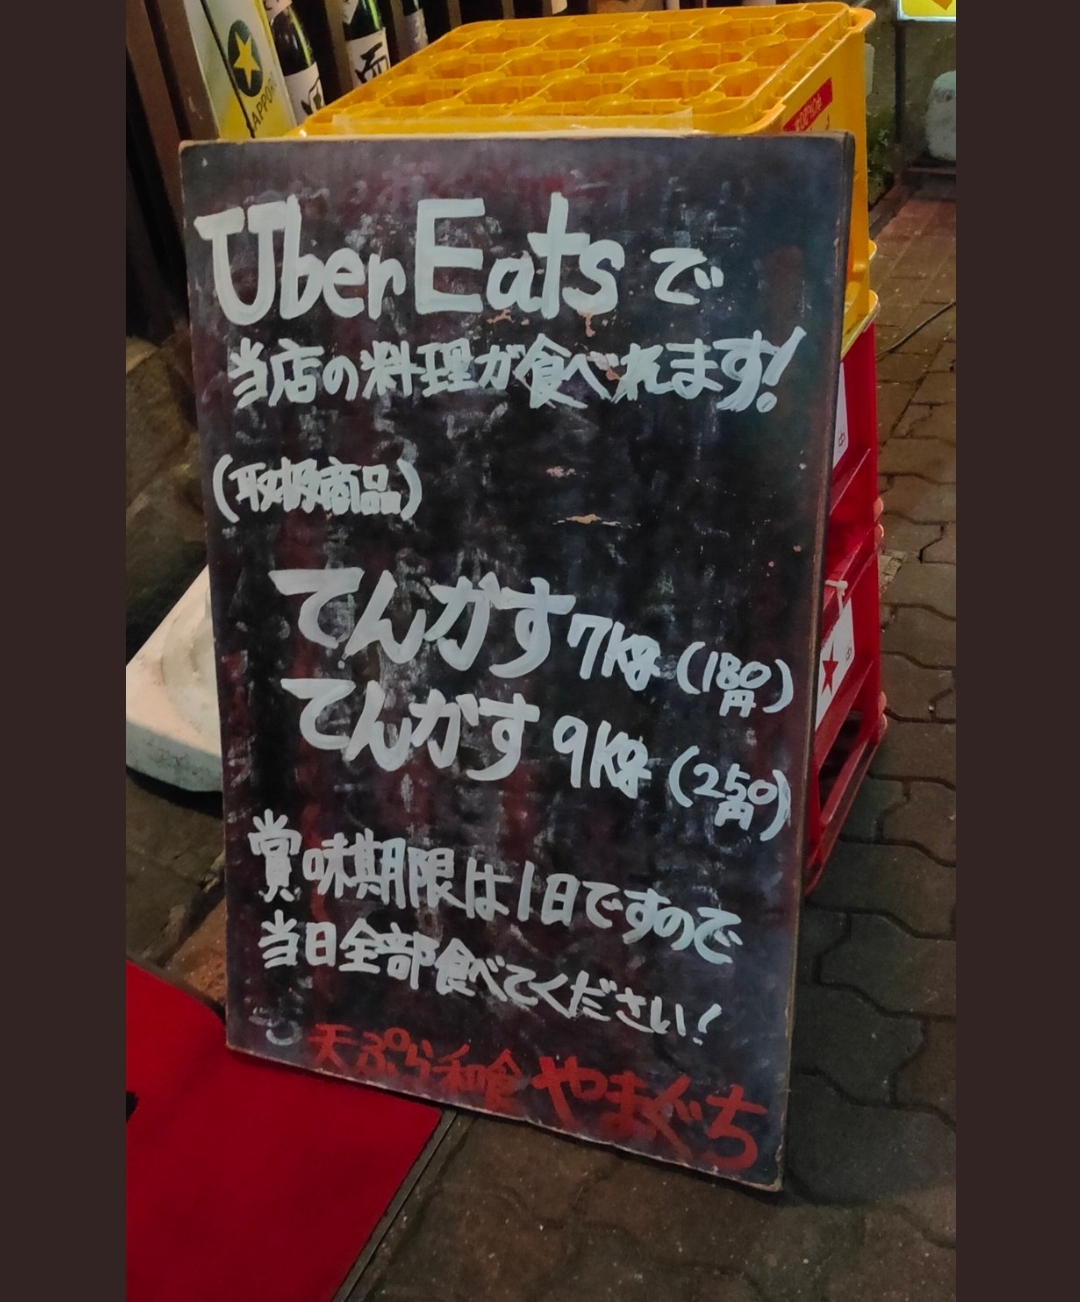 Uber Eats で
当店の料理が食べれます!
(取扱商品)
てんかす7kg(180円)
てんかす 9kg(250円)
賞味期限は1日ですので
当日全部食べてください!
天ぷら和食 やまぐち
SAPPORO